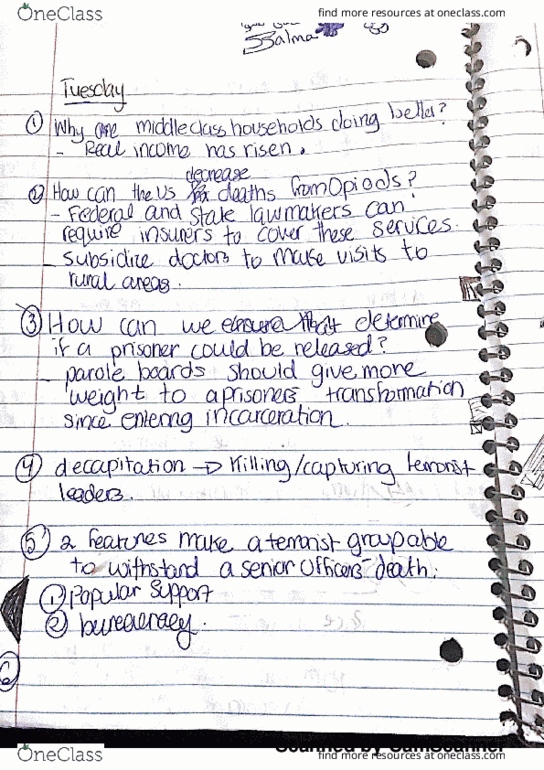 OneClass
find more resources at oneclass.com
Salma
Tuesday
① Why are middle class households doing better?
- Real income has risen.
decrease
② How can the US deaths from Opiods?
- Federal and State lawmakers can
require insurers to cover these services.
- subsidize doctors to make visits to
rural areas.
③ How can we determine
if a prisoner could be released?
- parole boards should give more
weight to a prisoners transformation
since entering incarceration.
④ decapitation → Killing/capturing terrorist
leaders.
⑤ 2 features make a terrorist group able
to withstand a senior officers death:
① Popular Support
② bureacracy.
⑥
Scanned by CamScanner
OneClass
find more resources at oneclass.com